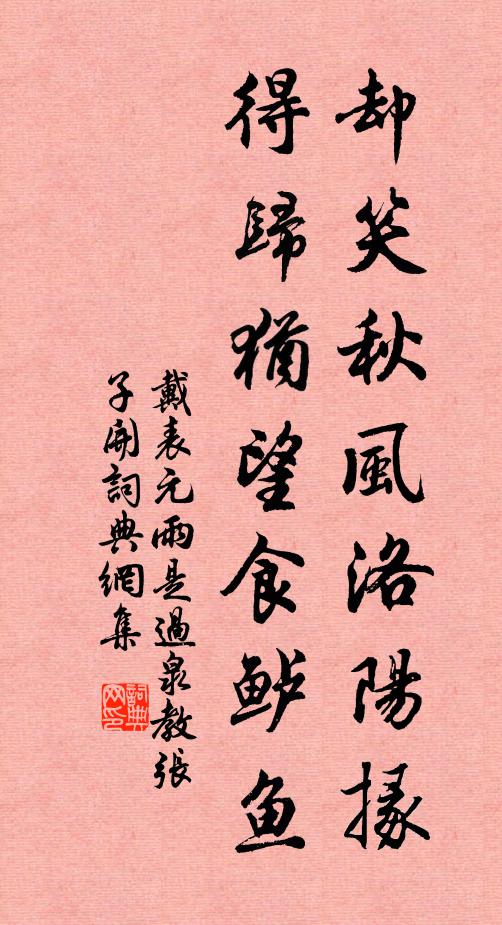 却笑秋風洛陽掾
得歸猶望食鲈鱼
戴表元雨是過泉教張
子開詞典網集
詞典
网印